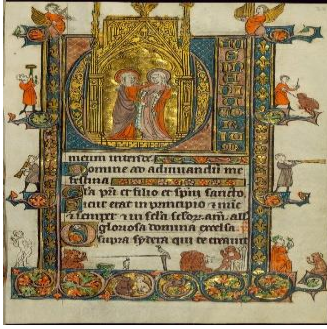 meum intende
Domine ad adiuuandū me
festina
Gl'a pr̄i et filio et sp̄ui sancto
sicut erat in principio et nūc
et semper et in scl'a scl'or. am. all'
gloriosa domina excelsa
supra sydera qui te creauit